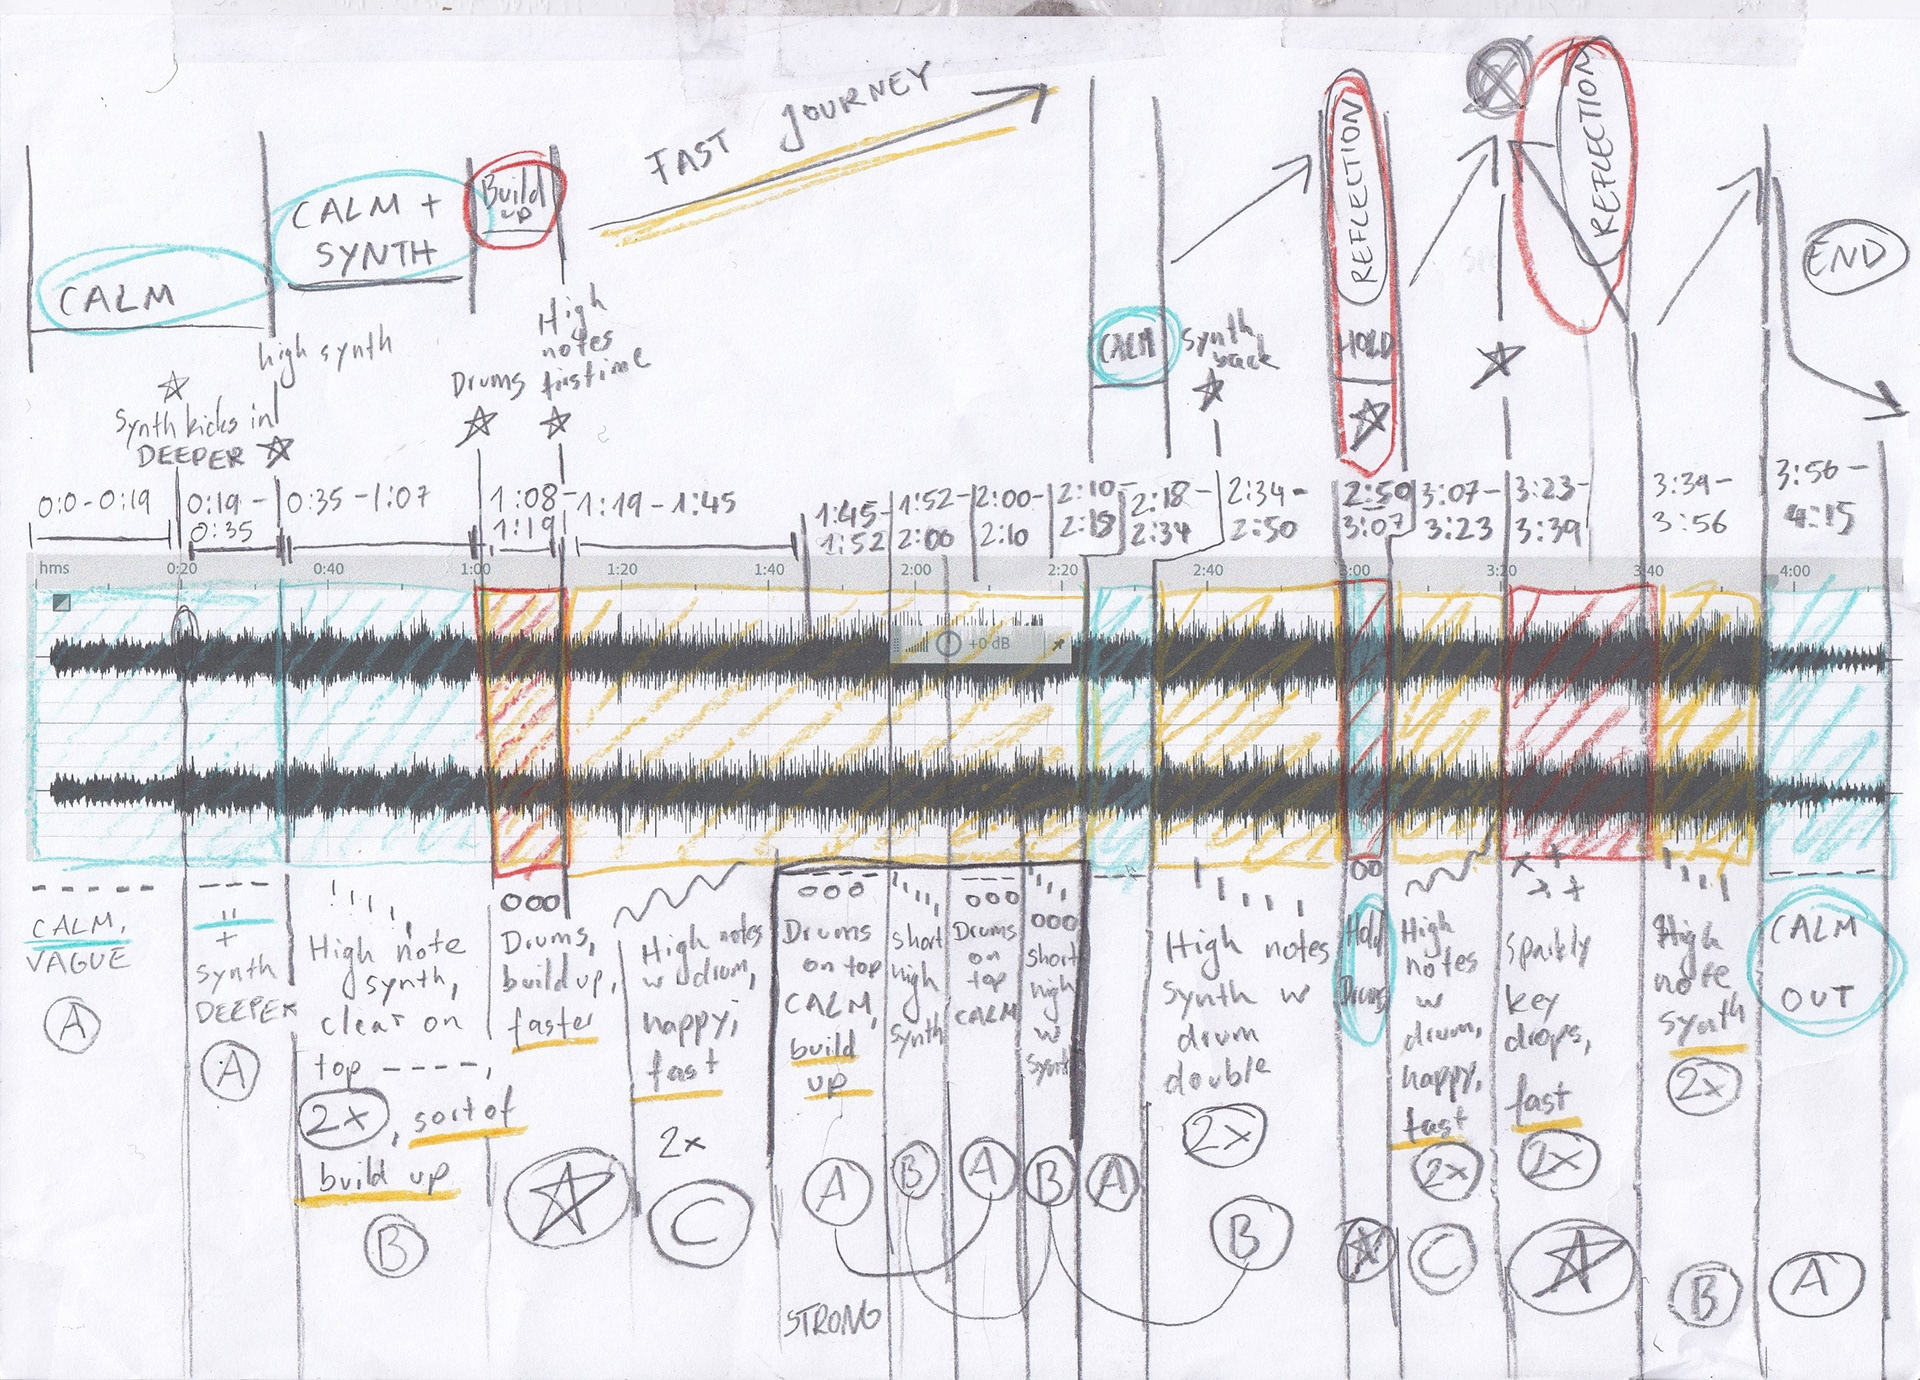 FAST JOURNEY
REFLECTION
REFLECTION
CALM +
SYNTH
Build
up
CALM
END
high synth
High
notes
firstime
Drums
CALM
Synth
back
HOLD
Synth kicks in
DEEPER
0:0-0:19
0:19-
0:35
0:35-1:07
1:08-
1:19
1:19-1:45
1:45-
1:52
1:52-
2:00
2:00-
2:10
2:10-
2:18
2:18-
2:34
2:34-
2:50
2:50
3:07
3:07-
3:23
3:23-
3:39
3:39-
3:56
3:56-
4:15
hms
0:20
0:40
1:00
1:20
1:40
2:00
2:20
2:40
3:00
3:20
3:40
4:00
+0 dB
CALM,
VAGUE
A
"
+
synth
DEEPER
A
High note
synth,
clear on
top ----,
2x, sort of
build up
B
Drums,
build up,
faster
High notes
w drum,
happy,
fast
2x
C
Drums
on top
CALM,
build
up
A
STRONG
short
high
synth
B
Drums
on
top
CALM
A
short
high
w
synt
B
A
High notes
synth w
drum
double
2x
B
Hold
Drums
High
notes
w
drum,
happy,
fast
2x
C
Sparkly
key
drops,
fast
2x
High
note
synth
2x
B
CALM
OUT
A